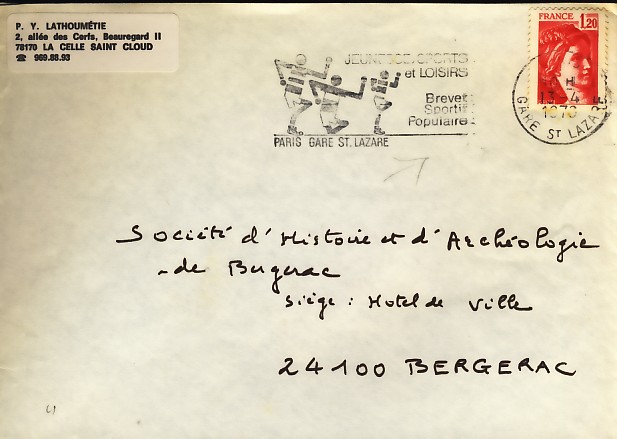 P. Y. LATHOUMÉTIE
2, allée des Cerfs, Beauregard II
78170 LA CELLE SAINT CLOUD
☎ 969.88.93
JEUNESSE/SPORTS
et LOISIRS
Brevet
Sportif
Populaire
PARIS GARE ST. LAZARE
FRANCE 1,20
H
13 - 4
GARE ST LAZARE
Société d'Histoire et d'Archéologie
de Bergerac
siège : Hotel de Ville
24100 BERGERAC